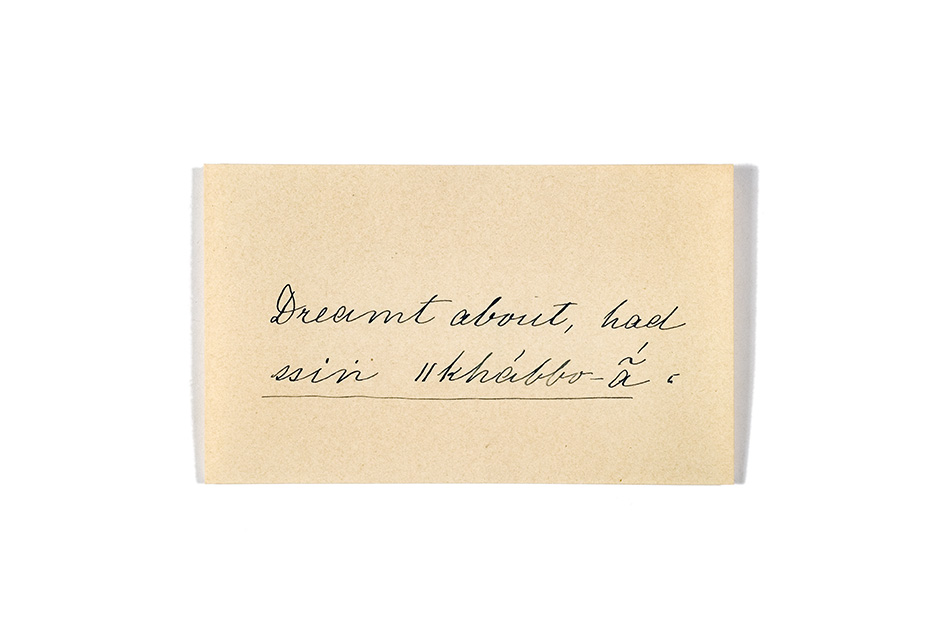 Dreamt about, had
ssiṅ ǁkhábbo-ā̃́ .